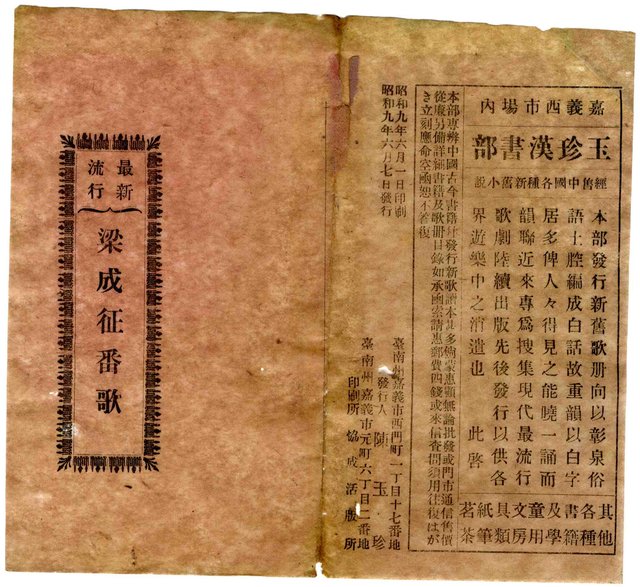 嘉義西市場內
玉珍漢書部
經售中國各種新舊小說
本部發行新舊歌册向以彰泉俗
語土腔編成白話故重韻以白字
居多俾人々得見之能曉一誦而
韻聯近來專爲搜集現代最流行
歌劇陸續出版先後發行以供各
界遊樂中之消遣也　此啓
其他各種書籍及學童用文房具類紙筆茗茶
本部專辦中國古今書籍幷發行新歌讀本甚多倘蒙惠顧無論批發或門市通信售價
從廉另備詳細書籍及歌册目錄如承函索請惠郵費四錢或來信査問須用往復はが
き立刻應命空函恕不答復
昭和九年六月一日印刷
昭和九年六月七日發行
臺南州嘉義市西門町一丁目十七番地
發行人　陳玉珍
臺南州嘉義市元町六丁目二番地
印刷所　協成活版所
最新
流行
梁成征番歌